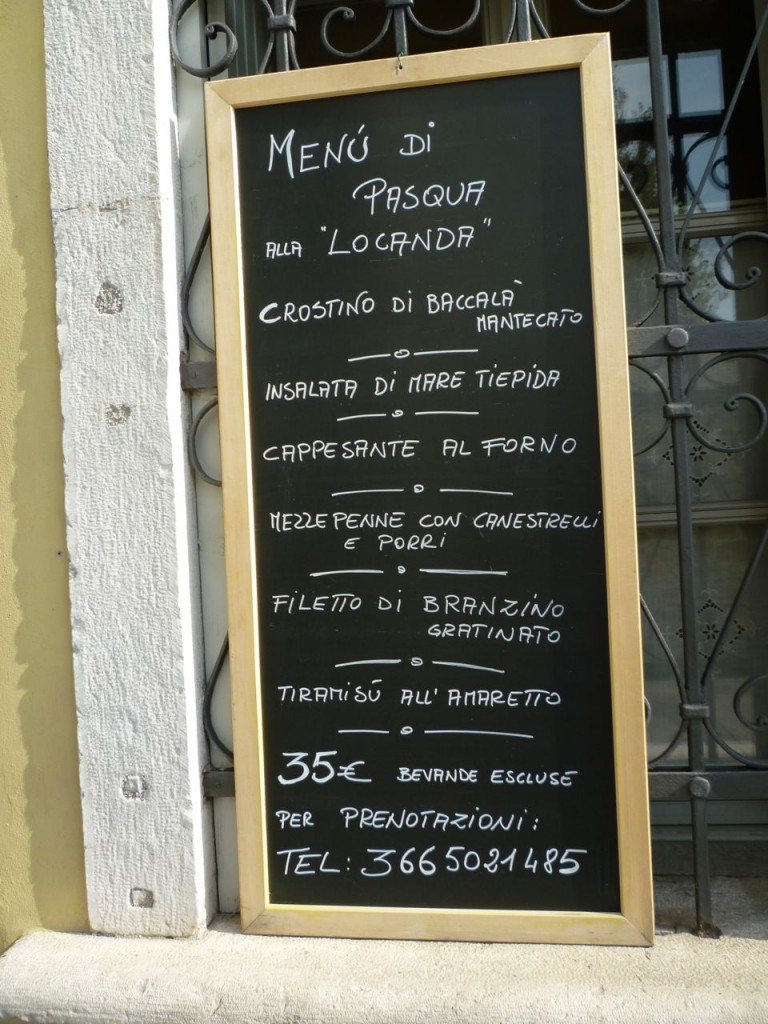 MENÚ DI
PASQUA
ALLA "LOCANDA"
CROSTINO DI BACCALÀ
MANTECATO
INSALATA DI MARE TIEPIDA
CAPPESANTE AL FORNO
MEZZE PENNE CON CANESTRELLI
E PORRI
FILETTO DI BRANZINO
GRATINATO
TIRAMISÚ ALL'AMARETTO
35€ BEVANDE ESCLUSE
PER PRENOTAZIONI:
TEL: 3665021485